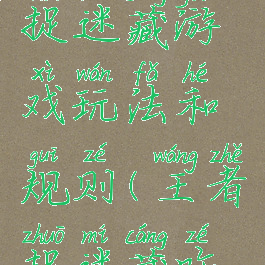 捉迷藏游
xì wán fǎ hé
戏玩法和
guī zé wáng zhě
规则(王者
zhuō mí cáng zé
捉迷藏